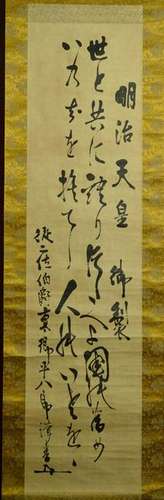 明治天皇 御製
世と共に語りつたへよ國能為め
い乃ちを捨てし人能いさをを
従二位伯爵東郷平八郎謹書